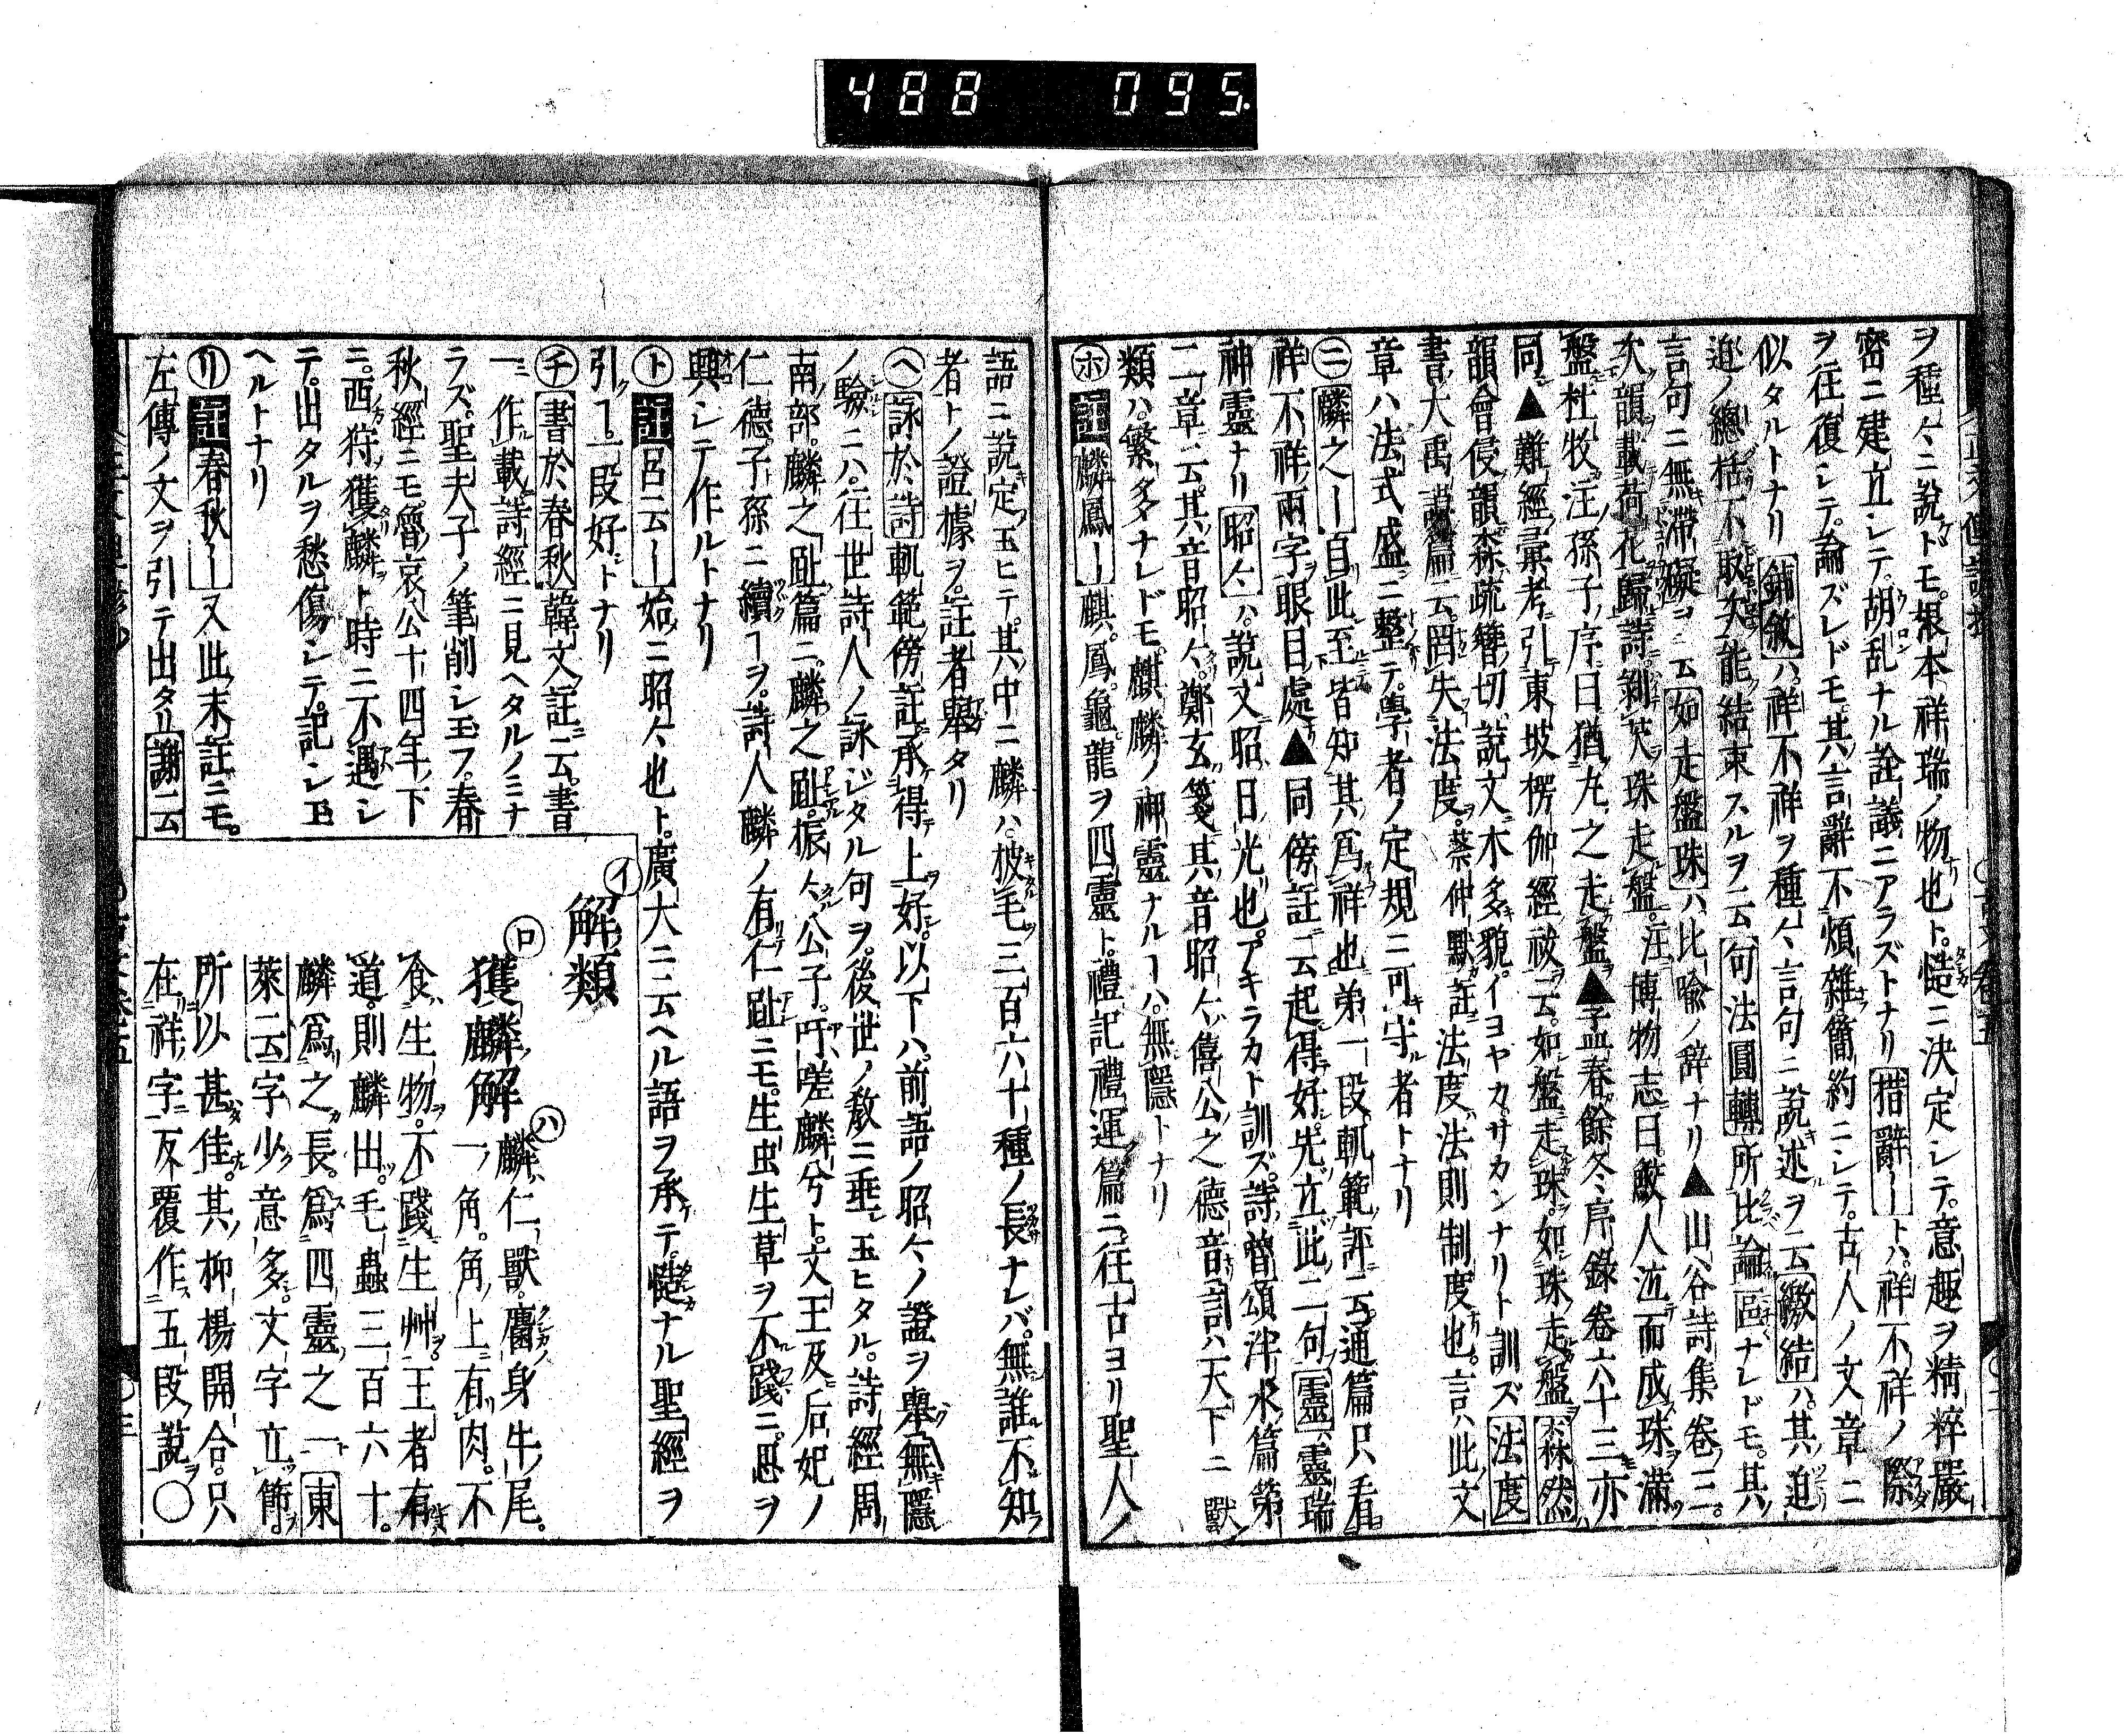 488 095.
ヲ種々ニ說トモ。根本祥瑞ノ物也ト。慥ニ決定シテ。意趣ヲ精粹嚴
密ニ建立シテ。胡乱ナル詮議ニアラズトナリ 措辭ートハ。祥不祥ノ際
ヲ往復シテ。論ズレドモ其言辭不煩雜。簡約ニシテ。古人ノ文章ニ
似タルトナリ 鋪敘ハ。祥不祥ヲ種々言句ニ說述ヲ云 繳結ハ。其迫
迫ノ總括不取次能結束スルヲ云 句法圓轉所比論區ナレドモ。其
言句ニ無滯礙ヲ云 如走盤珠ハ比喩ノ辭ナリ▲山谷詩集卷三。
次韻載荷花歸詩剝芡珠走盤。注博物志曰鮫人泣而成珠滿
盤杜牧注孫子序曰猶丸之走盤▲孟春餘冬序錄卷六十三亦
同▲難經彙考引東坡楞伽經祓云。如盤走珠。如珠走盤 森然ハ
韻會侵韻森疏簪切說文木多貌。イヨヤカ。サカンナリト訓ズ 法度
書大禹謨篇云。罔失法度。蔡仲默註法度法則制度也。言ハ此文
章ハ法式盛ニ整テ。學者ノ定規ニ可守者トナリ
㊁ 麟之ー自此至皆知其爲祥也弟一段。軌範評云。通篇只看。
祥不祥兩字眼目處▲同傍註云起得好。先立此二句 靈ハ靈瑞
神靈ナリ 昭々ハ。說文昭日光也。アキラカト訓ズ。詩魯頌泮水篇第
二章云。其音昭々。鄭玄箋其音昭々僖公之德音 言ハ天下ニ獸ノ
類ハ繁多ナレドモ。麒麟ノ神靈ナルヿハ。無隱トナリ
㋭ 註麟鳳ー麒。鳳。龜。龍ヲ四靈ト。禮記禮運篇ニ。往古ヨリ聖人ノ
語ニ說定玉ヒテ。其中ニ麟ハ。披毛三百六十種ノ長ナレバ。無誰不知
者トノ證據ヲ。註者舉タリ
㋬ 詠於詩軌範傍註承得上好。以下ハ。前語ノ昭々ノ證ヲ舉無隱
ノ驗ニハ。往世詩人ノ詠ジタル句ヲ。後世ノ教ニ垂玉ヒタル。詩經周
南部。麟之趾篇ニ。麟之趾。振々公子。吁嗟麟兮ト。文王及后妃ノ
仁德。子孫ニ續ヿヲ。詩人麟ノ有仁趾ニモ。生虫生草ヲ不踐ニ。思ヲ
興シテ作ルトナリ
㋣ 註呂云ー始ニ昭々也ト。廣大ニ云ヘル語ヲ承テ。慥ナル聖經ヲ
引ヿ。一段好トナリ
㋠ 書於春秋韓文註云。書
一ニ作載詩經ニ見ヘタルノミナ
ラズ。聖夫子ノ筆削シ玉フ。春
秋經ニモ。魯哀公十四年ノ下
ニ。西狩獲麟ト。時ニ不遇シ
テ。出タルヲ愁傷シテ。記シ玉
ヘルトナリ
㋷ 註春秋ー又此末註ニモ。
左傳ノ文ヲ引テ出タリ 謝云
㋑ 解類
㋺ 獲麟解 ㋩ 麟仁獸。麕身牛尾。
一角。角上有肉。不
食生物。不踐生艸。王者有
道。則麟出。毛蟲三百六十。
麟爲之長。爲四靈之一 東
萊云字少意多。文字立節。
所以甚佳。其抑楊開合。只
在祥字反覆作五段說〇